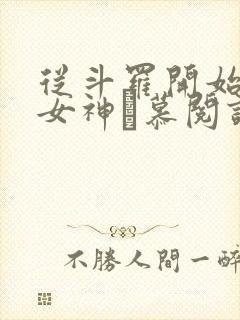 從斗羅開始
女神慕閱
不勝人間一醉